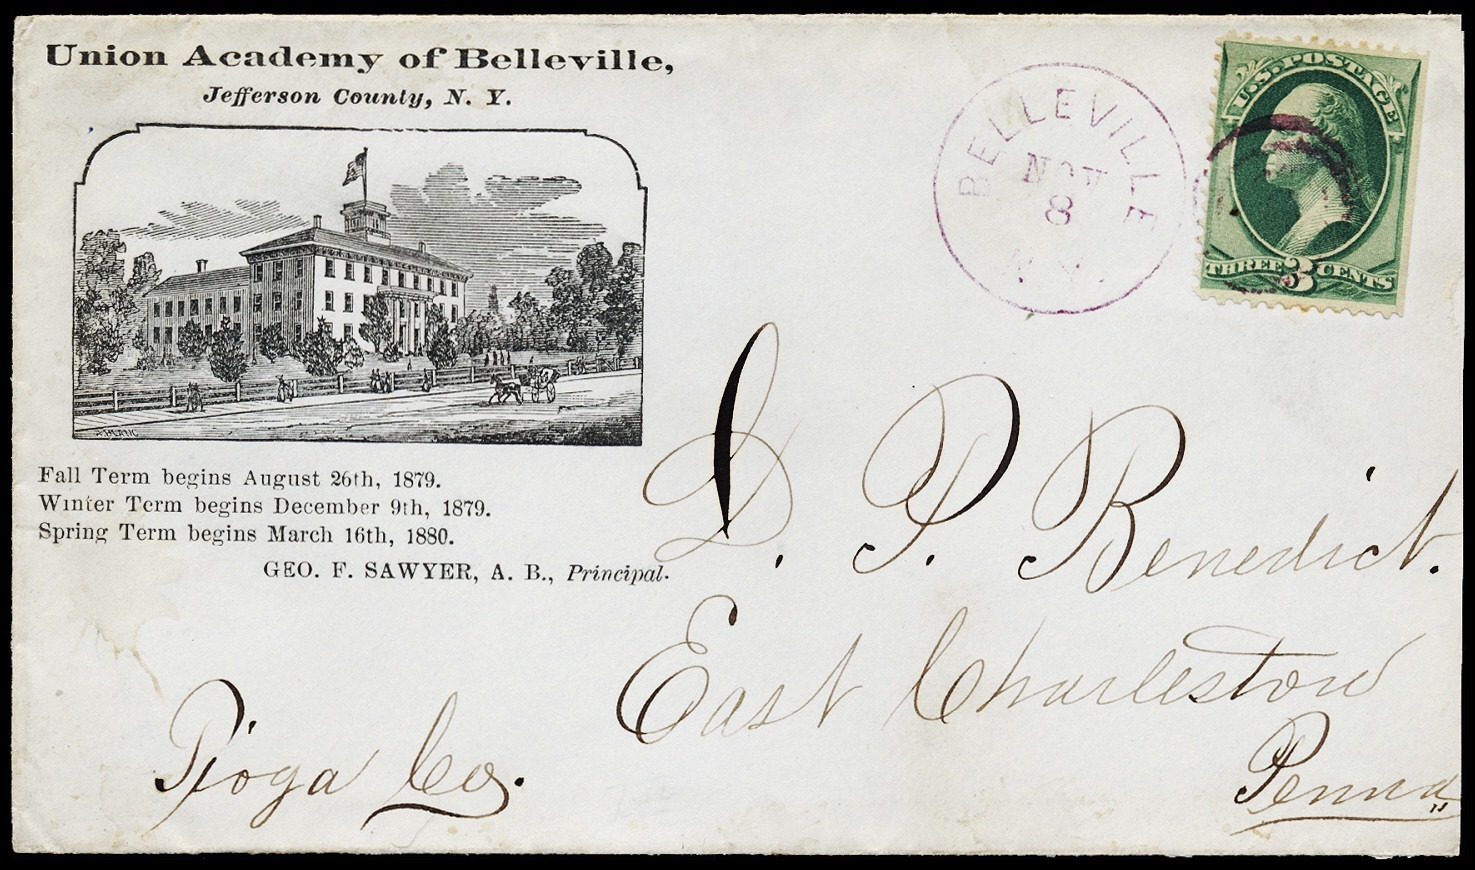 Union Academy of Belleville,
Jefferson County, N. Y.
Fall Term begins August 26th, 1879.
Winter Term begins December 9th, 1879.
Spring Term begins March 16th, 1880.
GEO. F. SAWYER, A. B., Principal.
BELLEVILLE
NOV
8
N.Y.
U.S. POSTAGE
THREE 3 CENTS
D. P. Benedict.
East Charleston
Tioga Co.
Penna